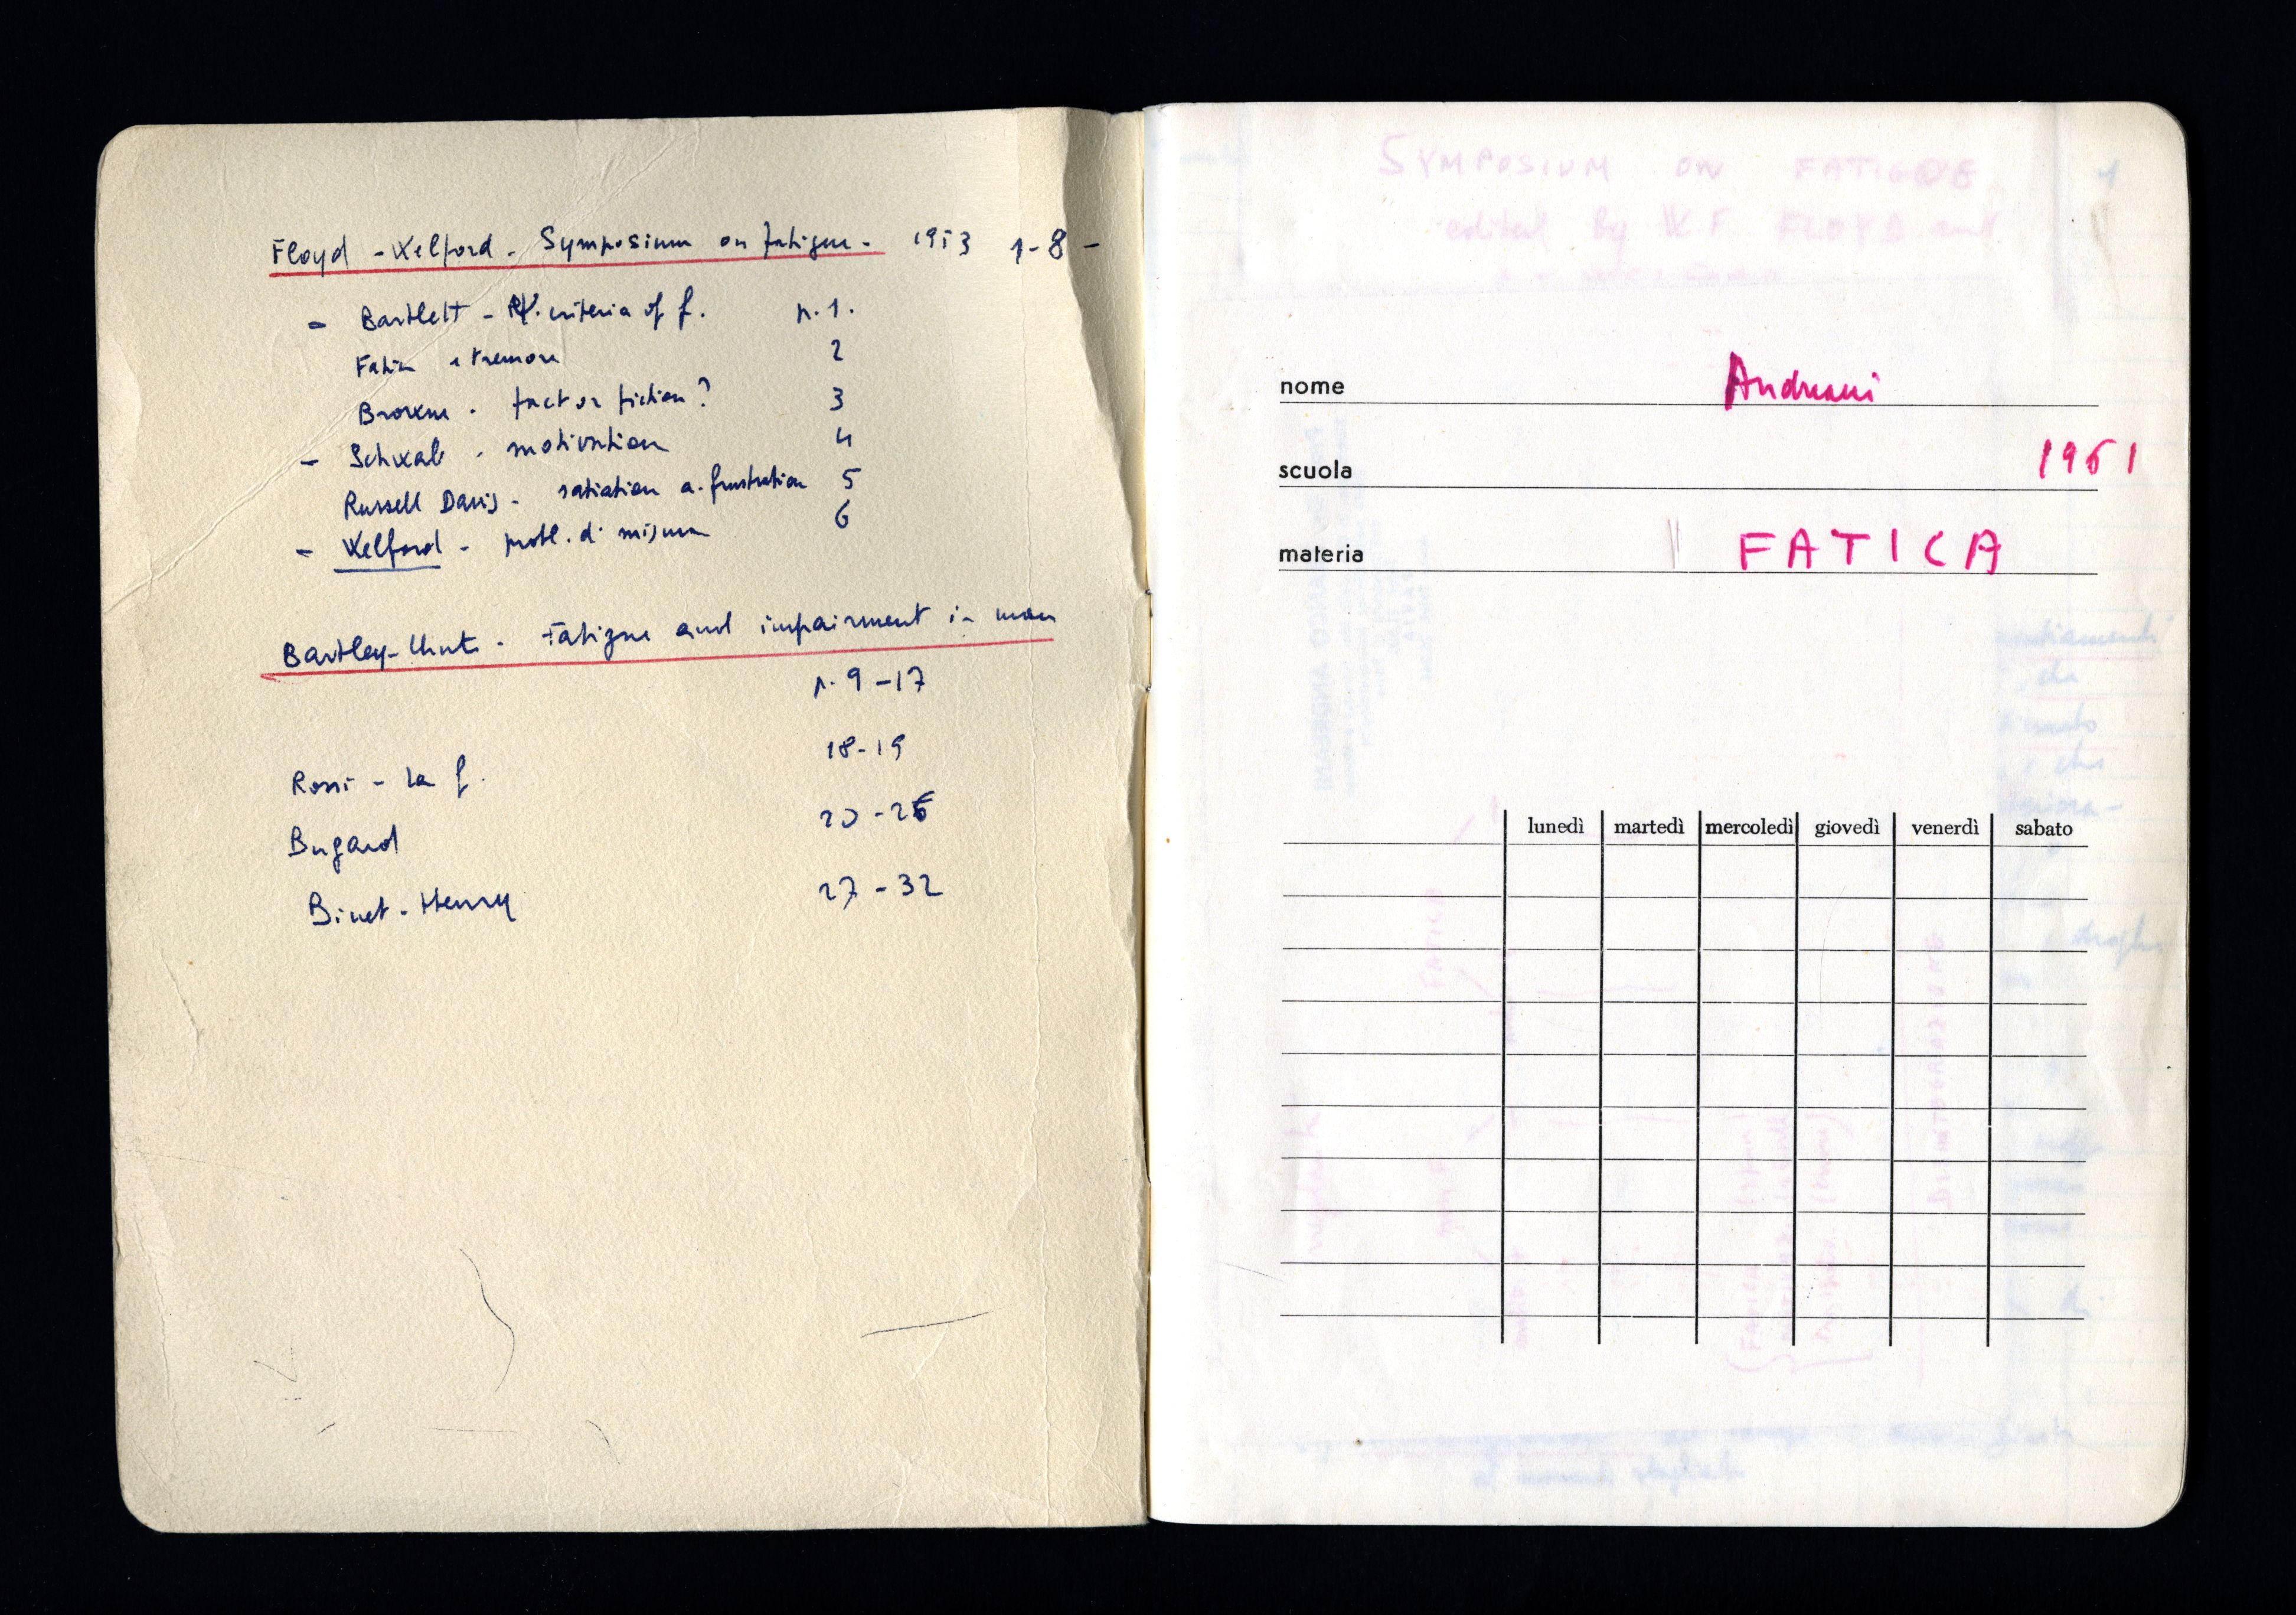 Floyd - Welford - Symposium on fatigue - 1953 1-8 -
- Bartlett - Ψ. criteria of f. p. 1.
tremore 2
Browne - fact or fiction? 3
- Schwab - motivation 4
Russell Davis - satiation a. frustration 5
- Welford - probl. di misura 6
Bartley-Chute - Fatigue and impairment in man
p. 9-17
18-19
Rossi - la f.
20-26
Bugard
27-32
Binet-Henry
SYMPOSIUM ON FATIGUE
edited by W F FLOYD and
nome Andreani
scuola 1961
materia FATICA
lunedì martedì mercoledì giovedì venerdì sabato